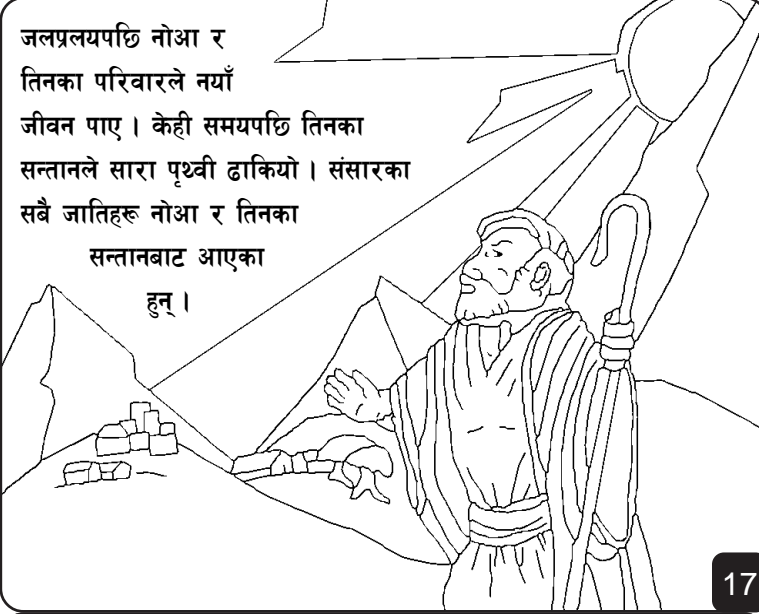 जलप्रलयपछि नोआ र
तिनका परिवारले नयाँ
जीवन पाए । केही समयपछि तिनका
सन्तानले सारा पृथ्वी ढाकियो । संसारका
सबै जातिहरू नोआ र तिनका
सन्तानबाट आएका
हुन् ।
17